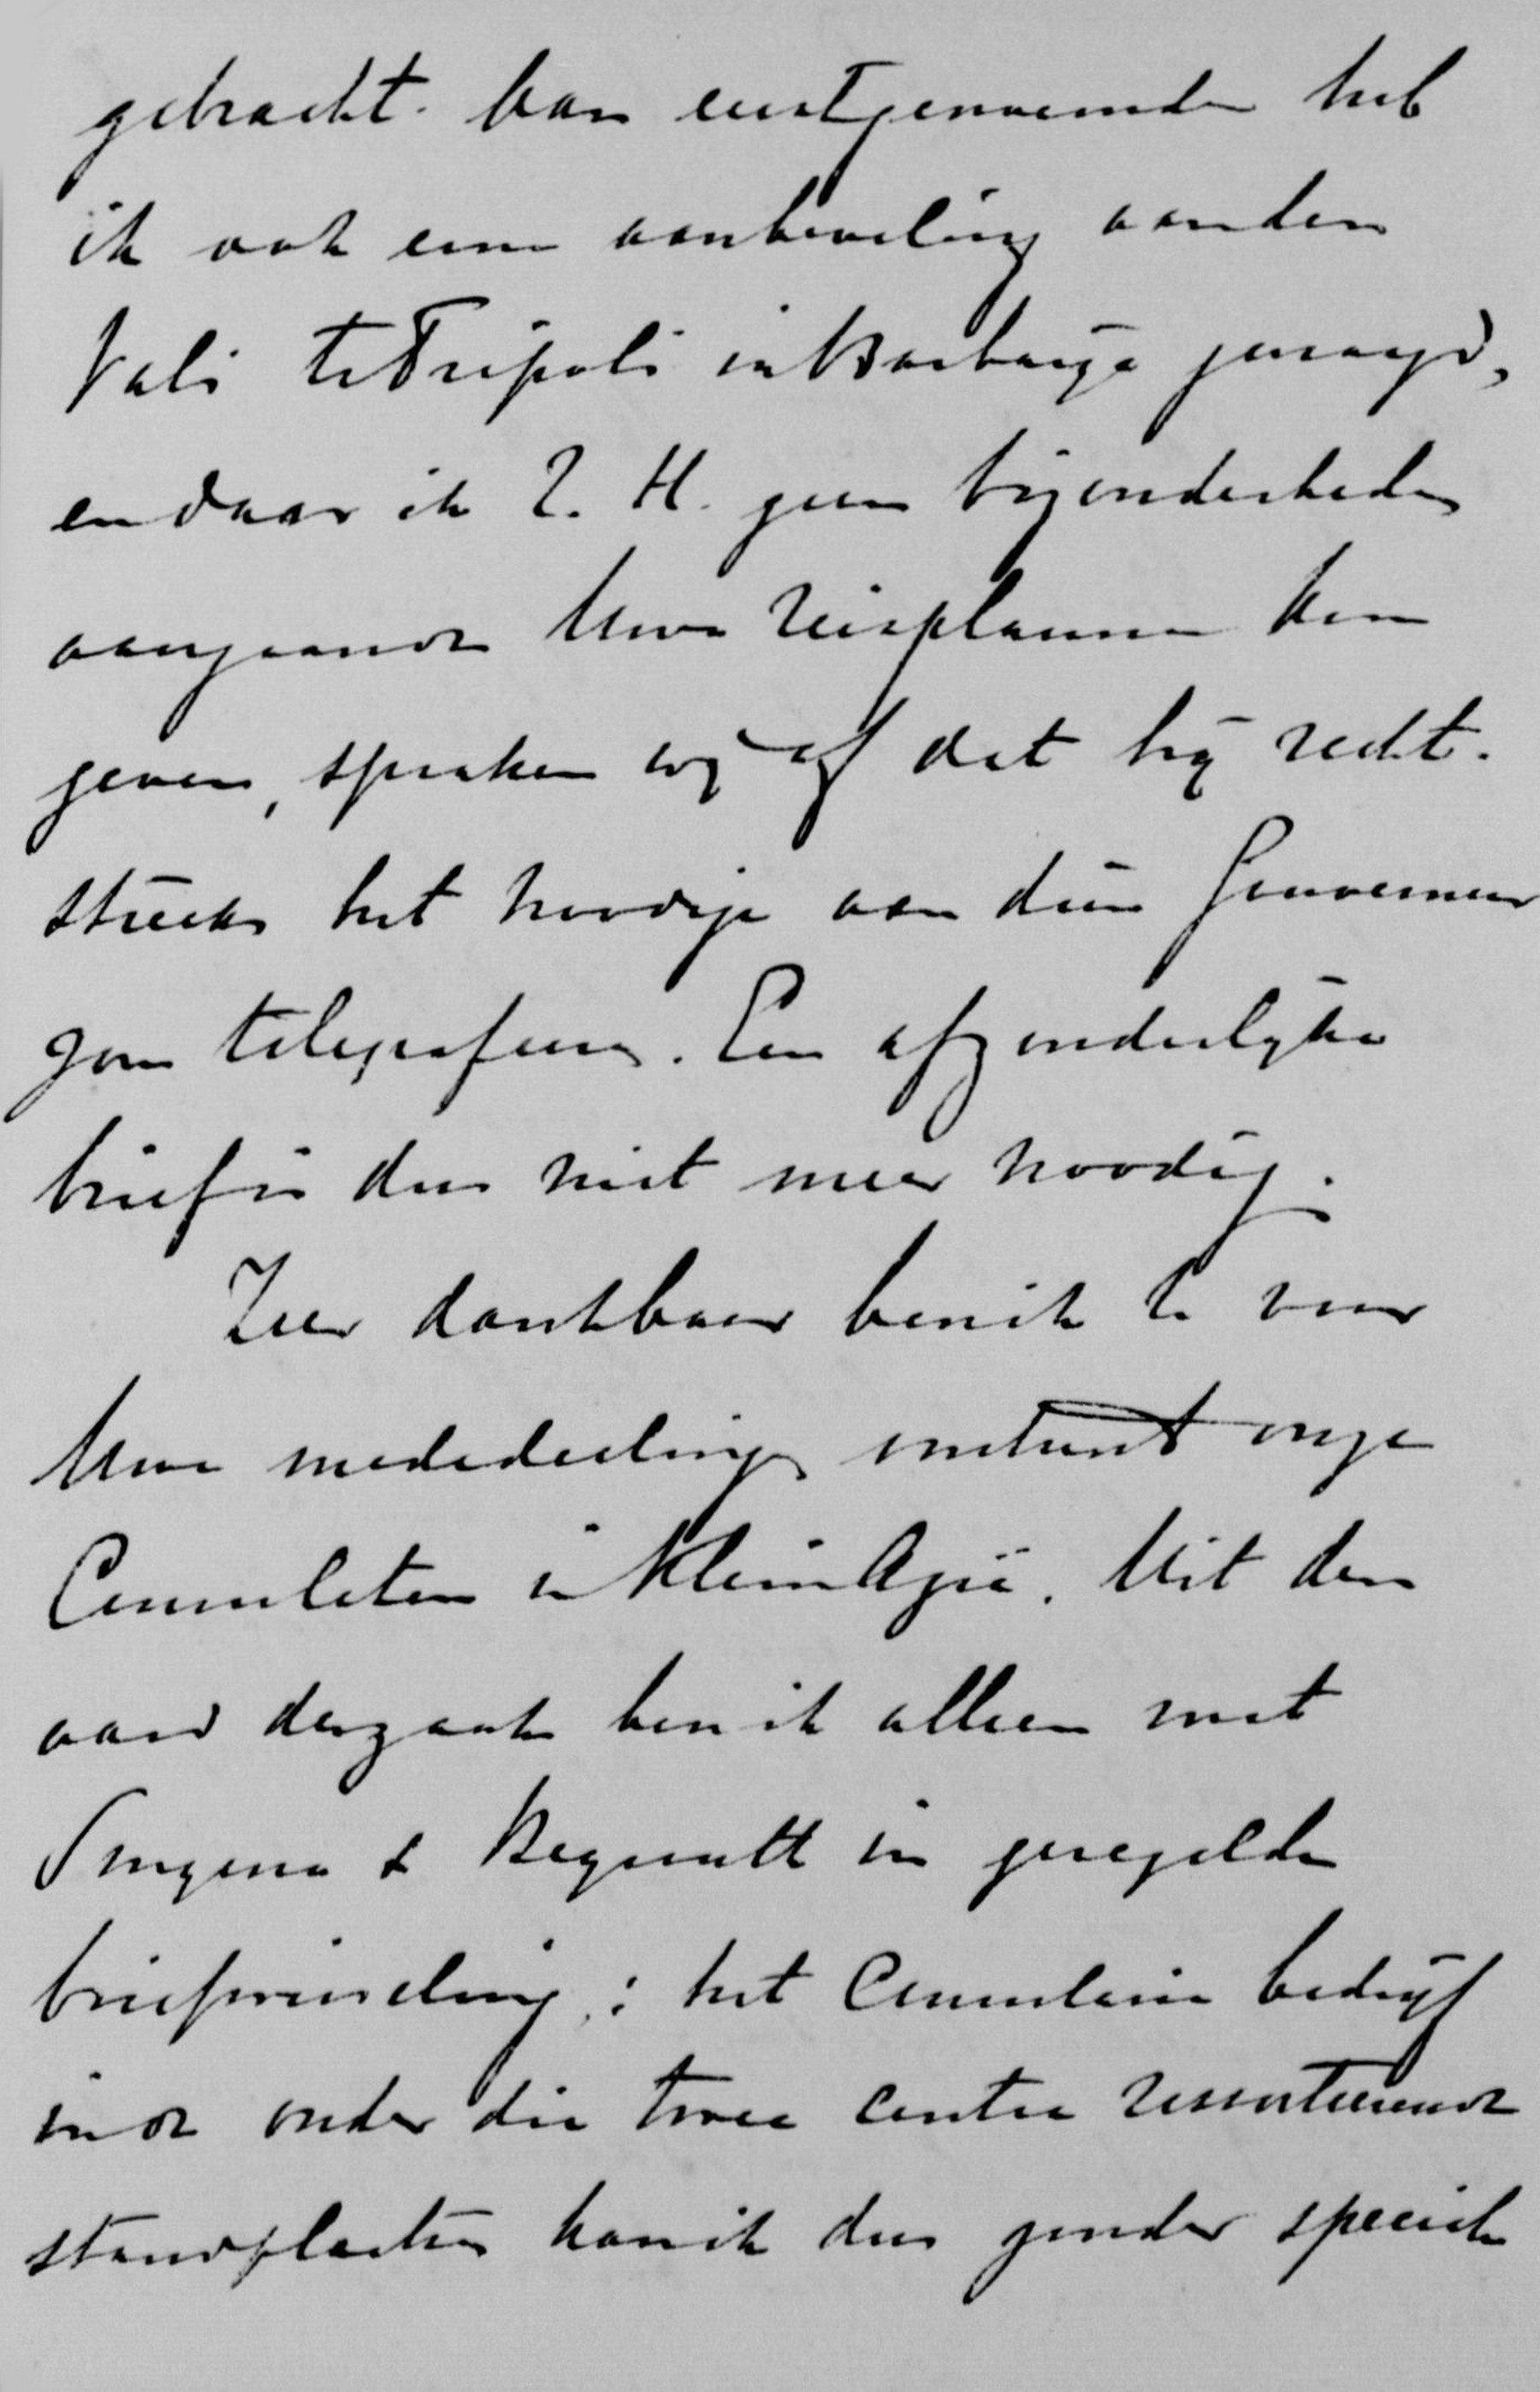 gebracht. Van eerstgenoemden heb
ik ook eene aanbeveling aan den
Vali te Tripoli in Barbarije gevraagd,
en daar ik Z. H. geen bijzonderheden
aangaande Uwe reisplannen kon
geven, spraken wij af dat hij recht-
streeks het noodige aan dien Gouverneur
zou telegrafeeren. Een afzonderlijke
brief is dus niet meer noodig.
Zeer dankbaar ben ik U voor
Uwe mededeelingen omtrent onze
Consulaten in Klein Azië. Uit den
aard der zaak ben ik alleen met
Smyrna & Beyrouth in geregelde
briefwisseling; het Consulaire bedrijf
in de onder die twee centra ressorteerende
standplaatsen kan ik dus zonder speciale